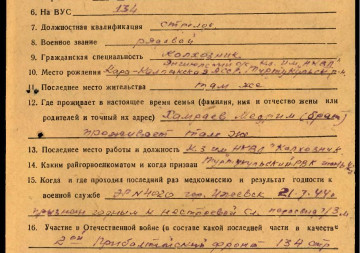 6. На ВУС 134
7. Должностная квалификация стрелок
8. Военное звание рядовой
9. Гражданская специальность Колхозник
10. Место рождения Кара-Калпакская АССР, Турткульский р-н
11. Последнее место жительства там же
12. Где проживает в настоящее время семья (фамилия, имя и отчество жены или
родителей и точный их адрес) (брат)
проживает там же
13. Последнее место работы и должность К-з им. НКВД "Колхозник
14. Каким райгорвоенкоматом и когда призван Турткульский РВК
15. Когда и где проходил последний раз медкомиссию и результат годности к
военной службе ЭГ №4020 гор. Ижевск 21.7.44г
признан годным к нестроевой сл.
16. Участие в Отечественной войне (в составе какой последней части и в качестве
2ой Прибалтийский фронт 134 отр